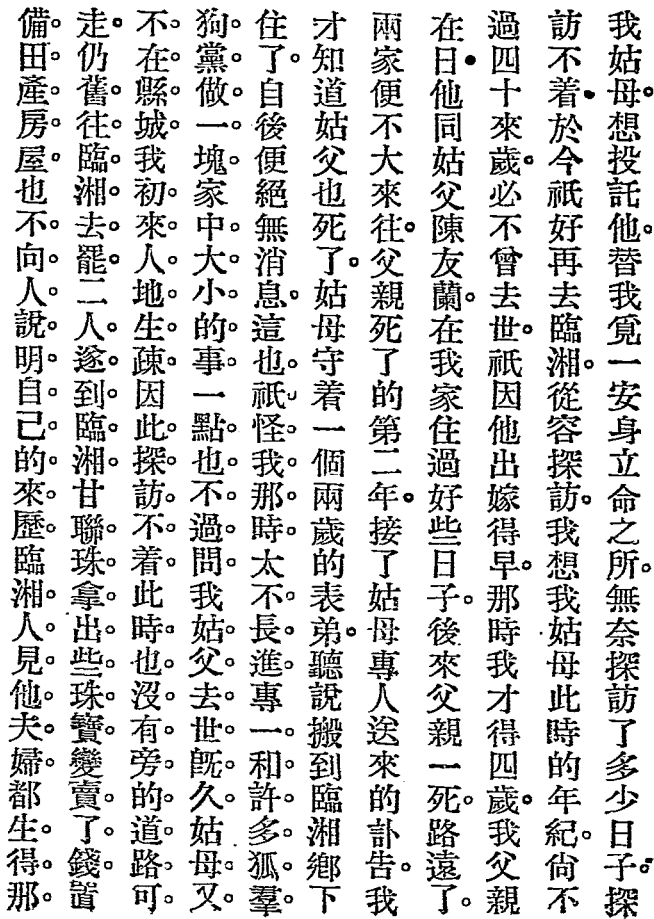 我姑母。想投託他。替我覓一安身立命之所。無奈探訪了多少日子。探
訪不着。於今祇好再去臨湘。從容探訪。我想我姑母此時的年紀。尙不
過四十來歲。必不曾去世。祇因他出嫁得早。那時我才得四歲。我父親
在日。他同姑父陳友蘭。在我家住過好些日子。後來父親一死。路遠了。
兩家便不大來往。父親死了的第二年。接了姑母專人送來的訃告。我
才知道姑父也死了。姑母守着一個兩歲的表弟。聽說搬到臨湘鄉下
住了。自後便絕無消息。這也。祇。怪。我。那。時。太。不。長。進。專。一。和。許。多。狐。羣。
狗。黨。做。一。塊。家。中。大。小。的。事。一。點。也。不。過。問。我。姑。父。去。世。旣。久。姑。母。又。
不。在。縣。城。我。初。來。人。地。生。疎。因。此。探。訪。不。着。此。時。也。沒。有。旁。的。道。路。可。
走。仍。舊。往。臨。湘。去。罷。二。人。遂。到。臨。湘。甘。聯。珠。拿。出。些。珠。寶。變。賣。了。錢。置
備。田。產。房。屋。也。不。向。人。說。明。自。己。的。來。歷。臨。湘。人。見。他。夫。婦。都。生。得。那。